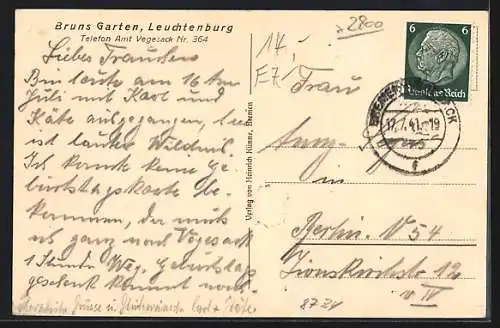 Bruns Garten, Leuchtenburg
Telefon Amt Vegesack Nr. 364
Liebes Trautchen
Bin heute am 16 ten
Juli mit Karl und
Käte ausgegangen, hier
ist lauter Wildnis.
Ich konnte keine Ge-
burtstagskarte be-
kommen, da muß
ich ganz nach Vegesack
1 Stunde Weg. Geburtstags
geschenk kommt noch.
Herzliche Grüsse u. Glückwünsche Carl u. Käte
Verlag von Heinrich Hünte, Bremen
2800
14,-
E71
Frau
in
Berlin N 54
Zionskirchstr 12
IV
8721
6 6
Deutsches Reich
17.7.41.-19